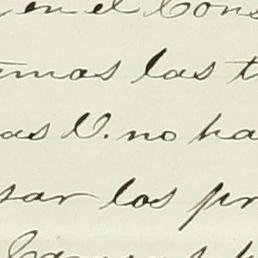 en el Cons
imas las t
as V. no ha
sar los pr